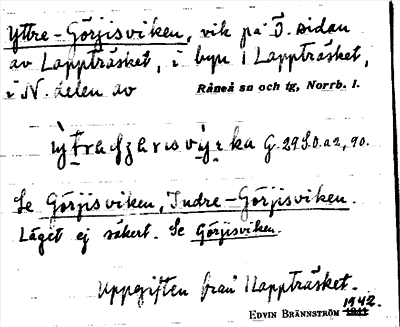 Yttre-Görjisviken, vik på Ö. sidan
av Lappträsket, i byn Lappträsket,
i N. delen av Råneå sn och tg, Norrb. l.
G. 29 S.O. a2, 90.
Se Görjisviken, Indre-Görjisviken.
Läget ej säkert. Se Görjisviken.
Uppgiften från Lappträsket.
1942.
EDVIN BRÄNNSTRÖM 1941